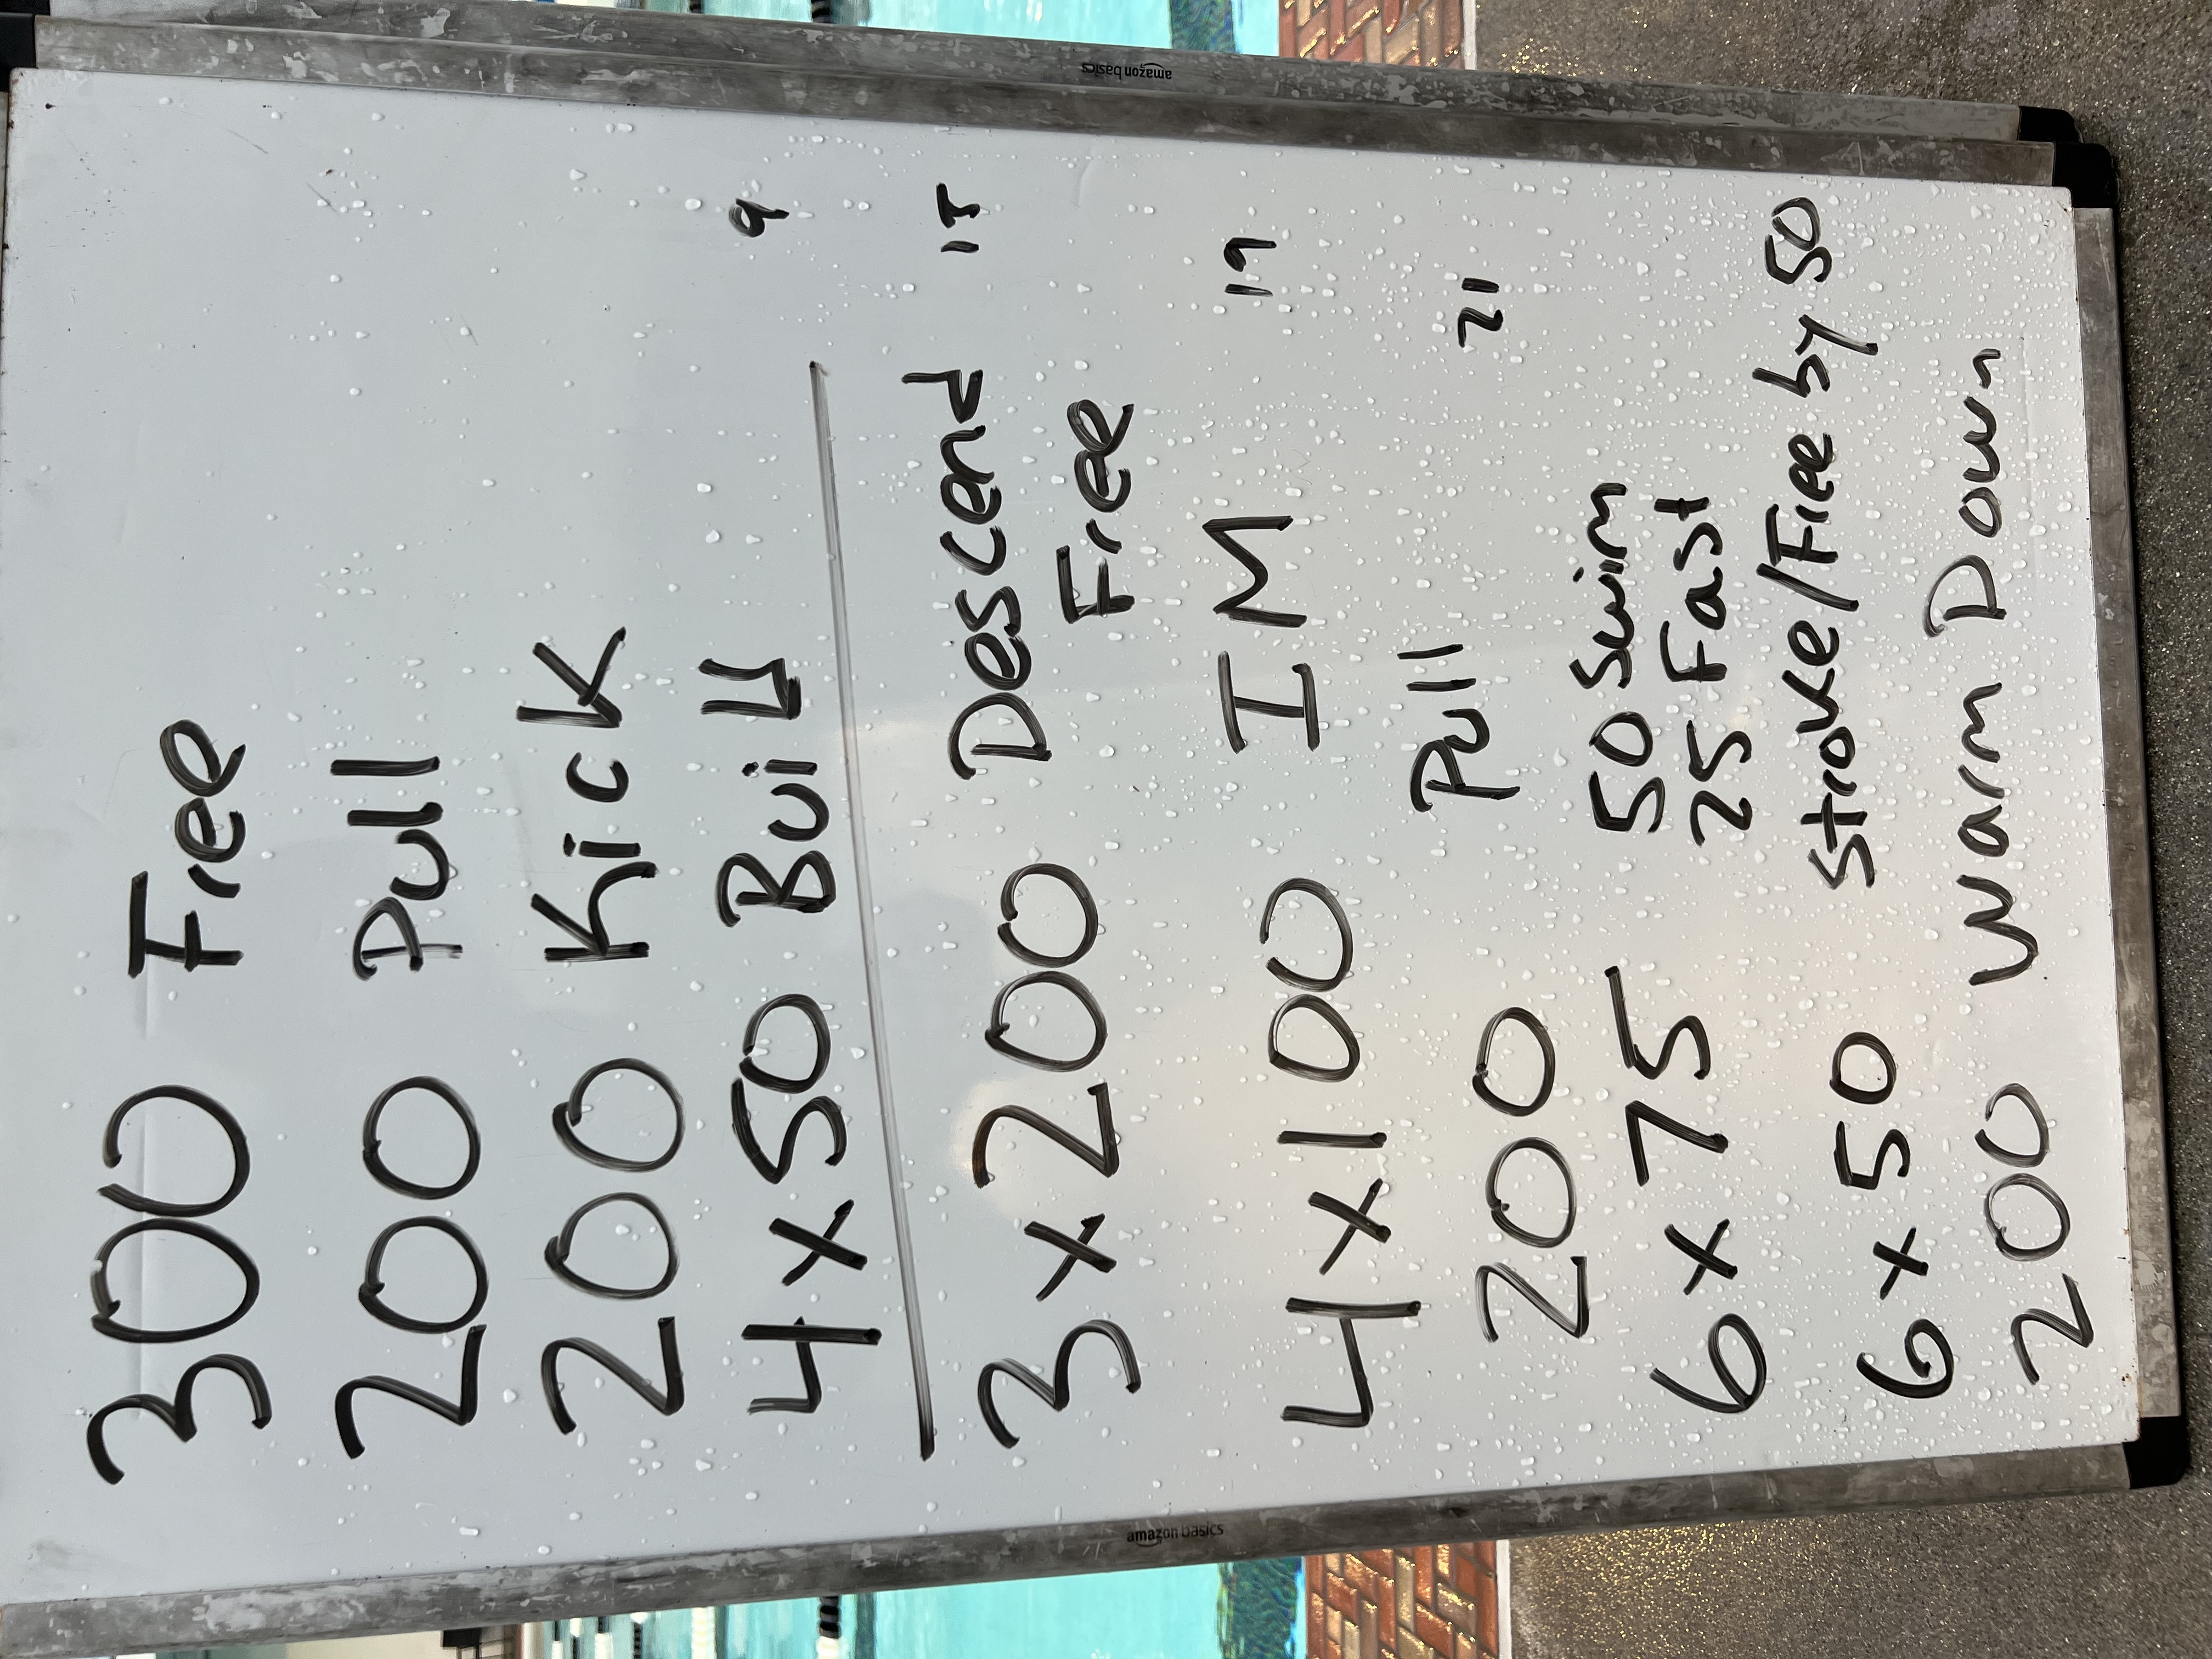 300 Free
200 Pull
200 Kick
4x50 Build 9
3x200 Descend 15
Free
4x100 IM 19
200 Pull 21
6x75 50 Swim
25 Fast
6x50 Stroke/Free by 50
200 Warm Down
amazon basics
amazon basics